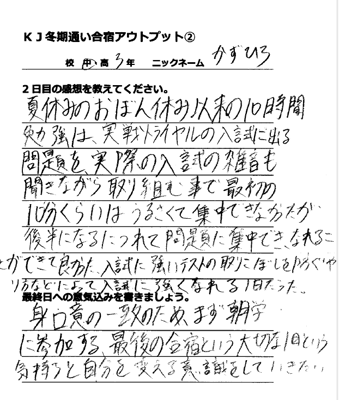 KJ冬期通い合宿アウトプット②
校 中 高 3年 ニックネーム かずひろ
2日目の感想を教えてください。
夏休みのおぼん休み以来の10時間
勉強は、実戦トライヤルの入試に出る
問題を、実際の入試の雑音も
聞きながら取り組む事で最初の
10分くらいはうるさくて集中できなかったが
後半になるにつれて問題に集中できなれるこ
とができて良かった、入試に強いテストの取りこぼしを防ぐや
り方などによって入試に強くなれる1日だった。
最終日への意気込みを書きましょう。
身口意の一致のため、まず朝学
に参加する、最後の合宿という大切な1日という
気持ちと自分を変える意識をしていきたい